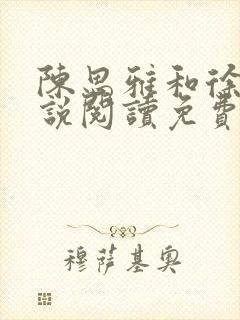 陳思雅和徐
說閱讀免費
穆薩基奧